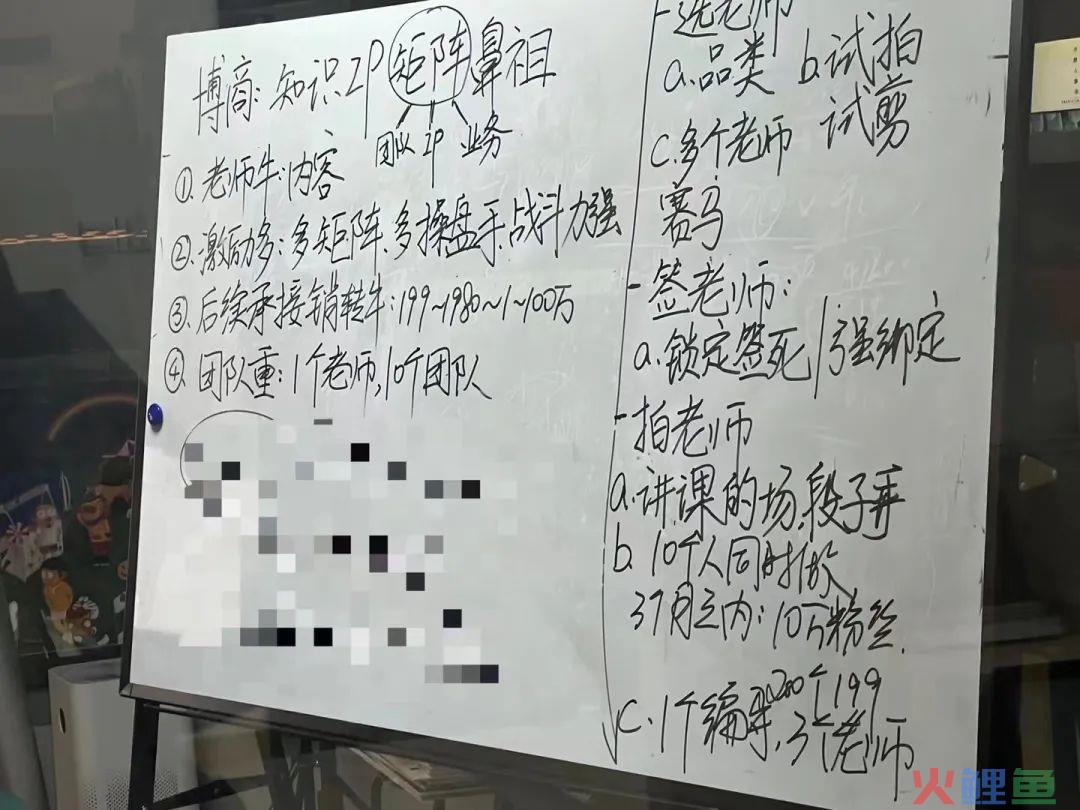 博商:知识IP矩阵鼻祖
团队 IP 业务
①.老师牛:内容
②.激励多:多矩阵.多操盘手.战斗力强
③.后续承接销转牛:199~1980~1~100万
④.团队重:1个老师,10个团队
-选老师
a.品类 b.试拍
试剪
c.多个老师
赛马
-签老师:
a.锁定签死/强绑定
-拍老师
a.讲课的场,段子手
b.10个人同时做
3个月之内:10万粉丝.
200个199
c.1个编导,3个老师
火鲤鱼